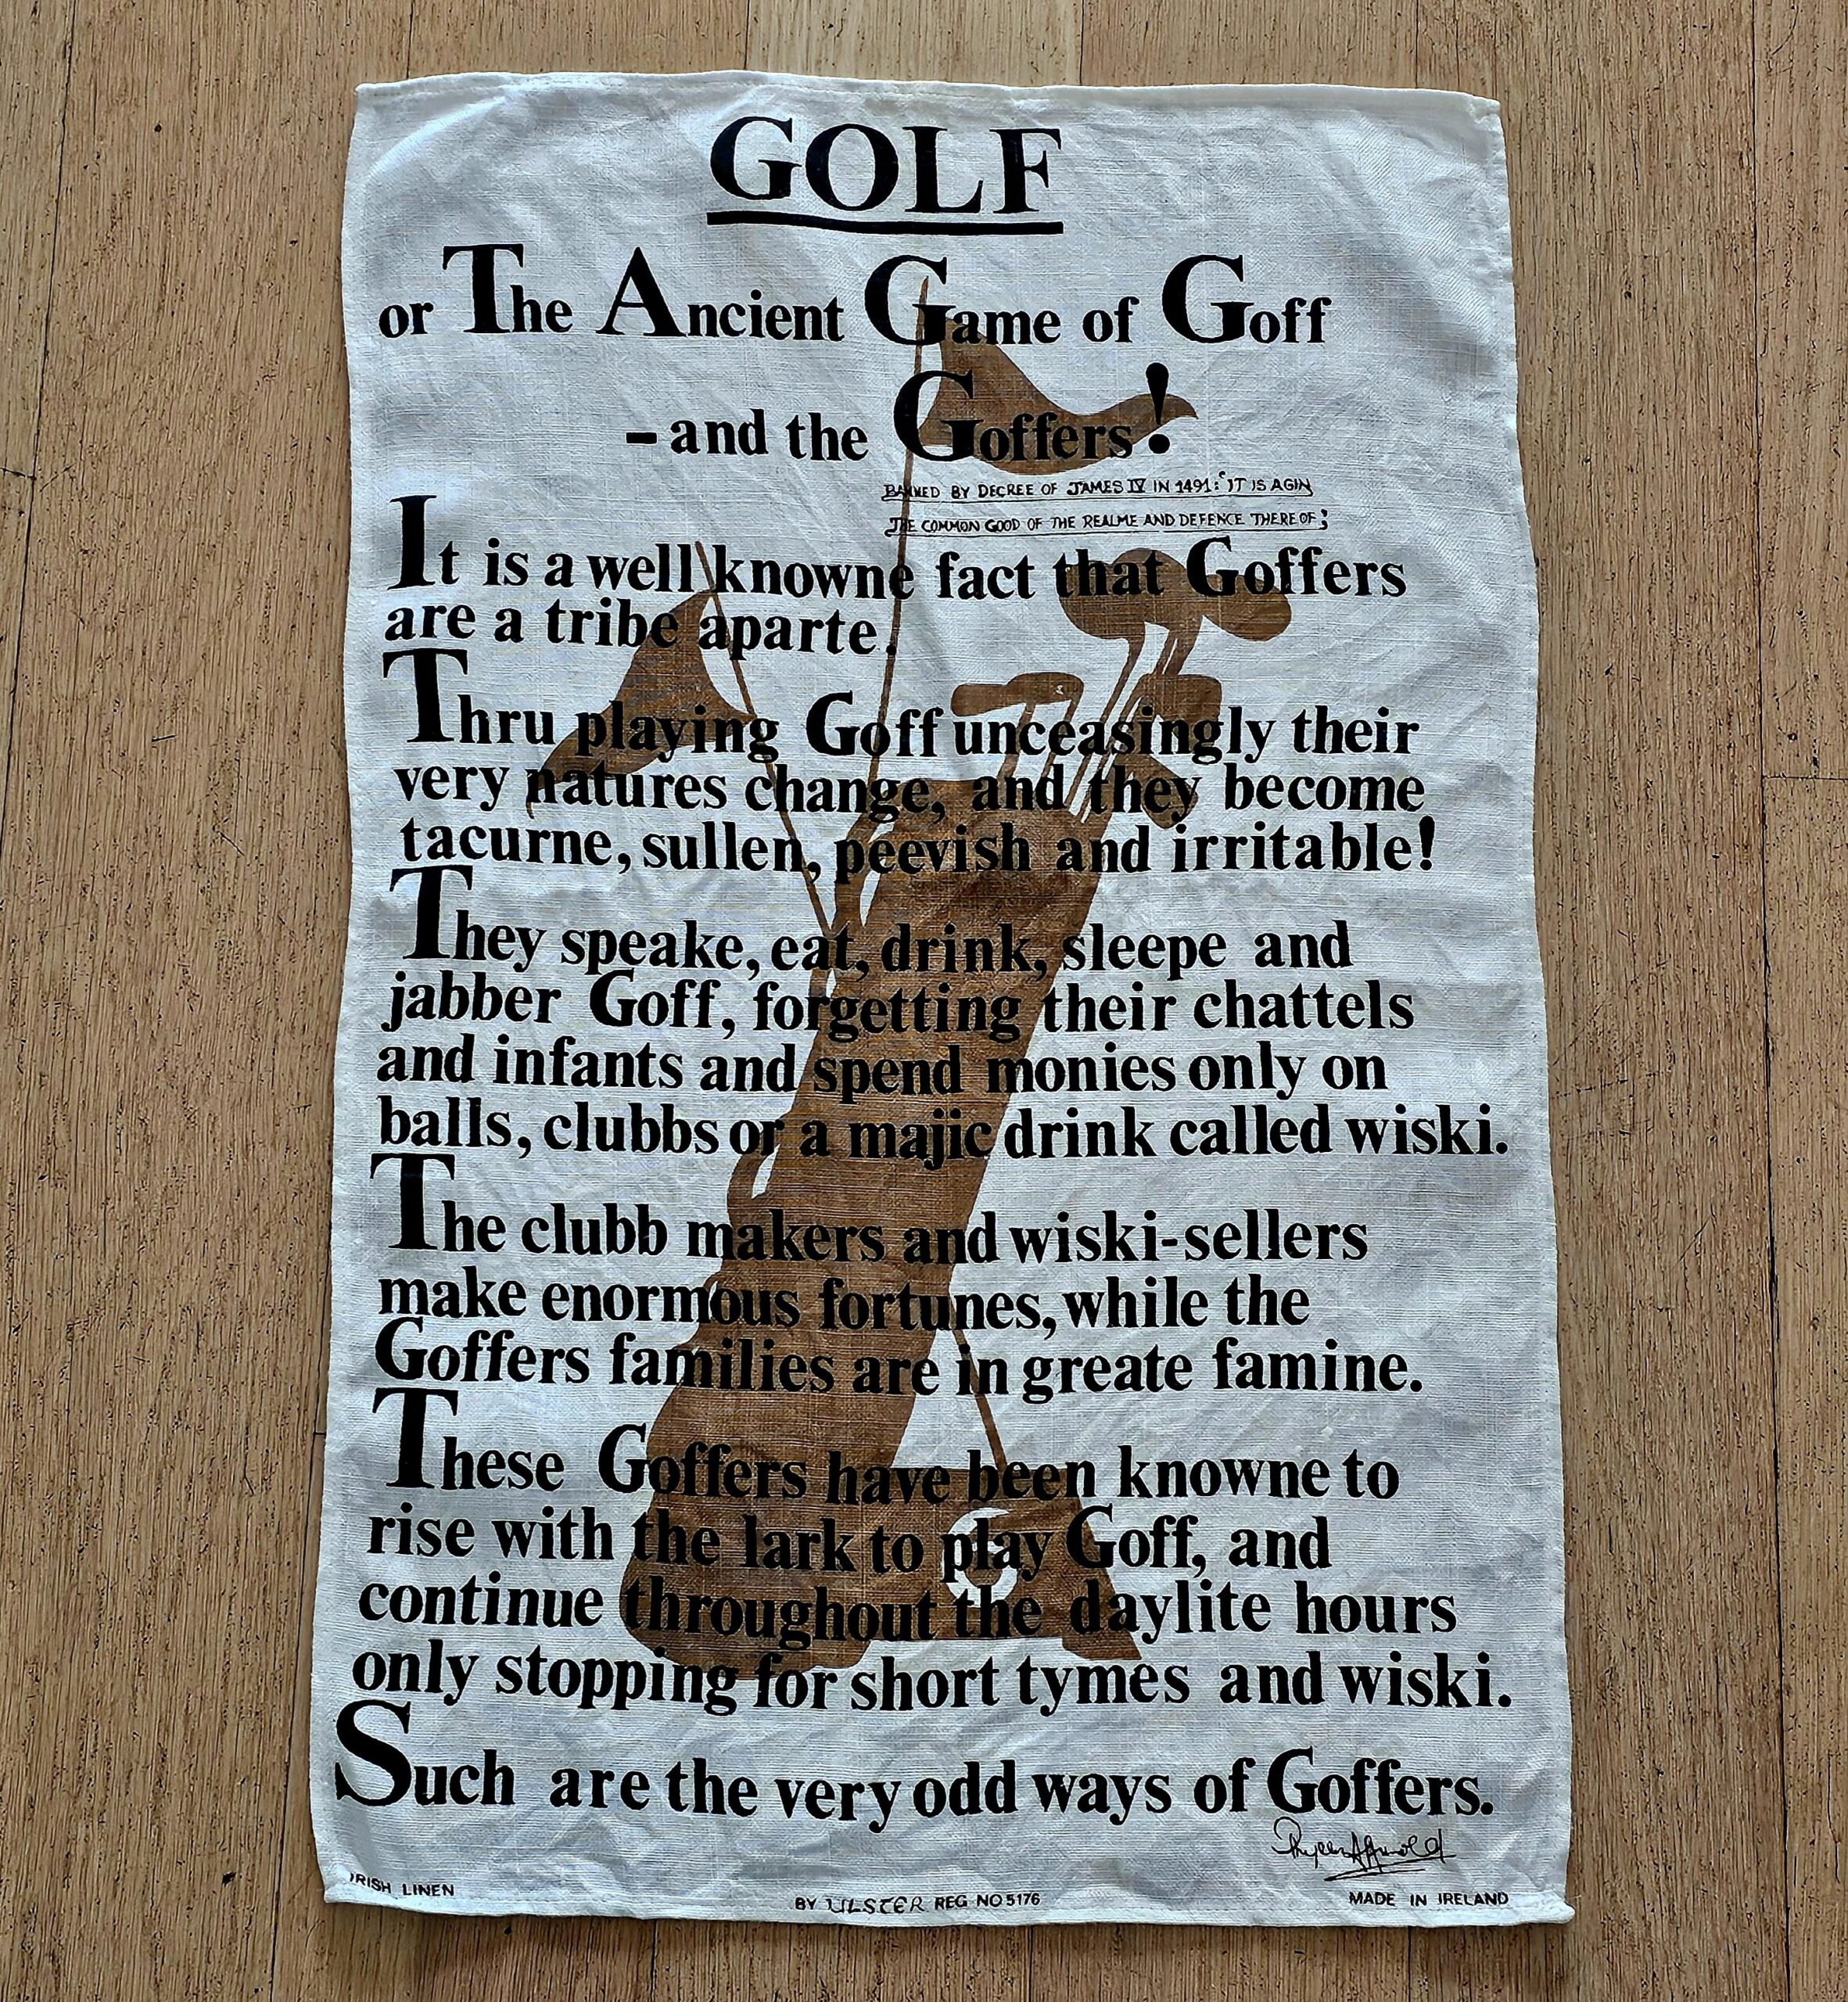 GOLF
or The Ancient Game of Goff
- and the Goffers!
BANNED BY DECREE OF JAMES IV IN 1491: 'IT IS AGIN
THE COMMON GOOD OF THE REALME AND DEFENCE THERE OF;
It is a well knowne fact that Goffers
are a tribe aparte.
Thru playing Goff unceasingly their
very natures change, and they become
tacurne, sullen, peevish and irritable!
They speake, eat, drink, sleepe and
jabber Goff, forgetting their chattels
and infants and spend monies only on
balls, clubbs or a majic drink called wiski.
The clubb makers and wiski-sellers
make enormous fortunes, while the
Goffers families are in greate famine.
These Goffers have been knowne to
rise with the lark to play Goff, and
continue throughout the daylite hours
only stopping for short tymes and wiski.
Such are the very odd ways of Goffers.
IRISH LINEN
BY ULSTER REG NO 5176
MADE IN IRELAND